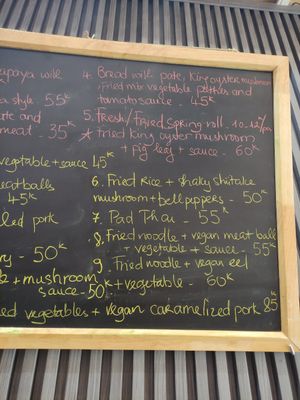 apaya with
a style - 55k
te and
meat - 35k
vegetable + sauce 45k
eatballs
45k
led pork
ry - 50k
+ mushroom
sauce - 50k
ed vegetables + vegan caramelized pork 85k
4. Bread with pate, King oyster mushroom
, Fried mix vegetable potatoes and
tomato sauce - 45k
5. Fresh/Fried Spring roll - 10.12/pcs
* fried king oyster mushroom
+ fig leaf + sauce - 60k
6. Fried Rice + shaky shiitake
mushroom + bell peppers - 50k
7. Pad Thai - 55k
8. Fried noodle + vegan meat ball
+ vegetable + sauce - 55k
9. Fried noodle + vegan eel
+ vegetable - 60k